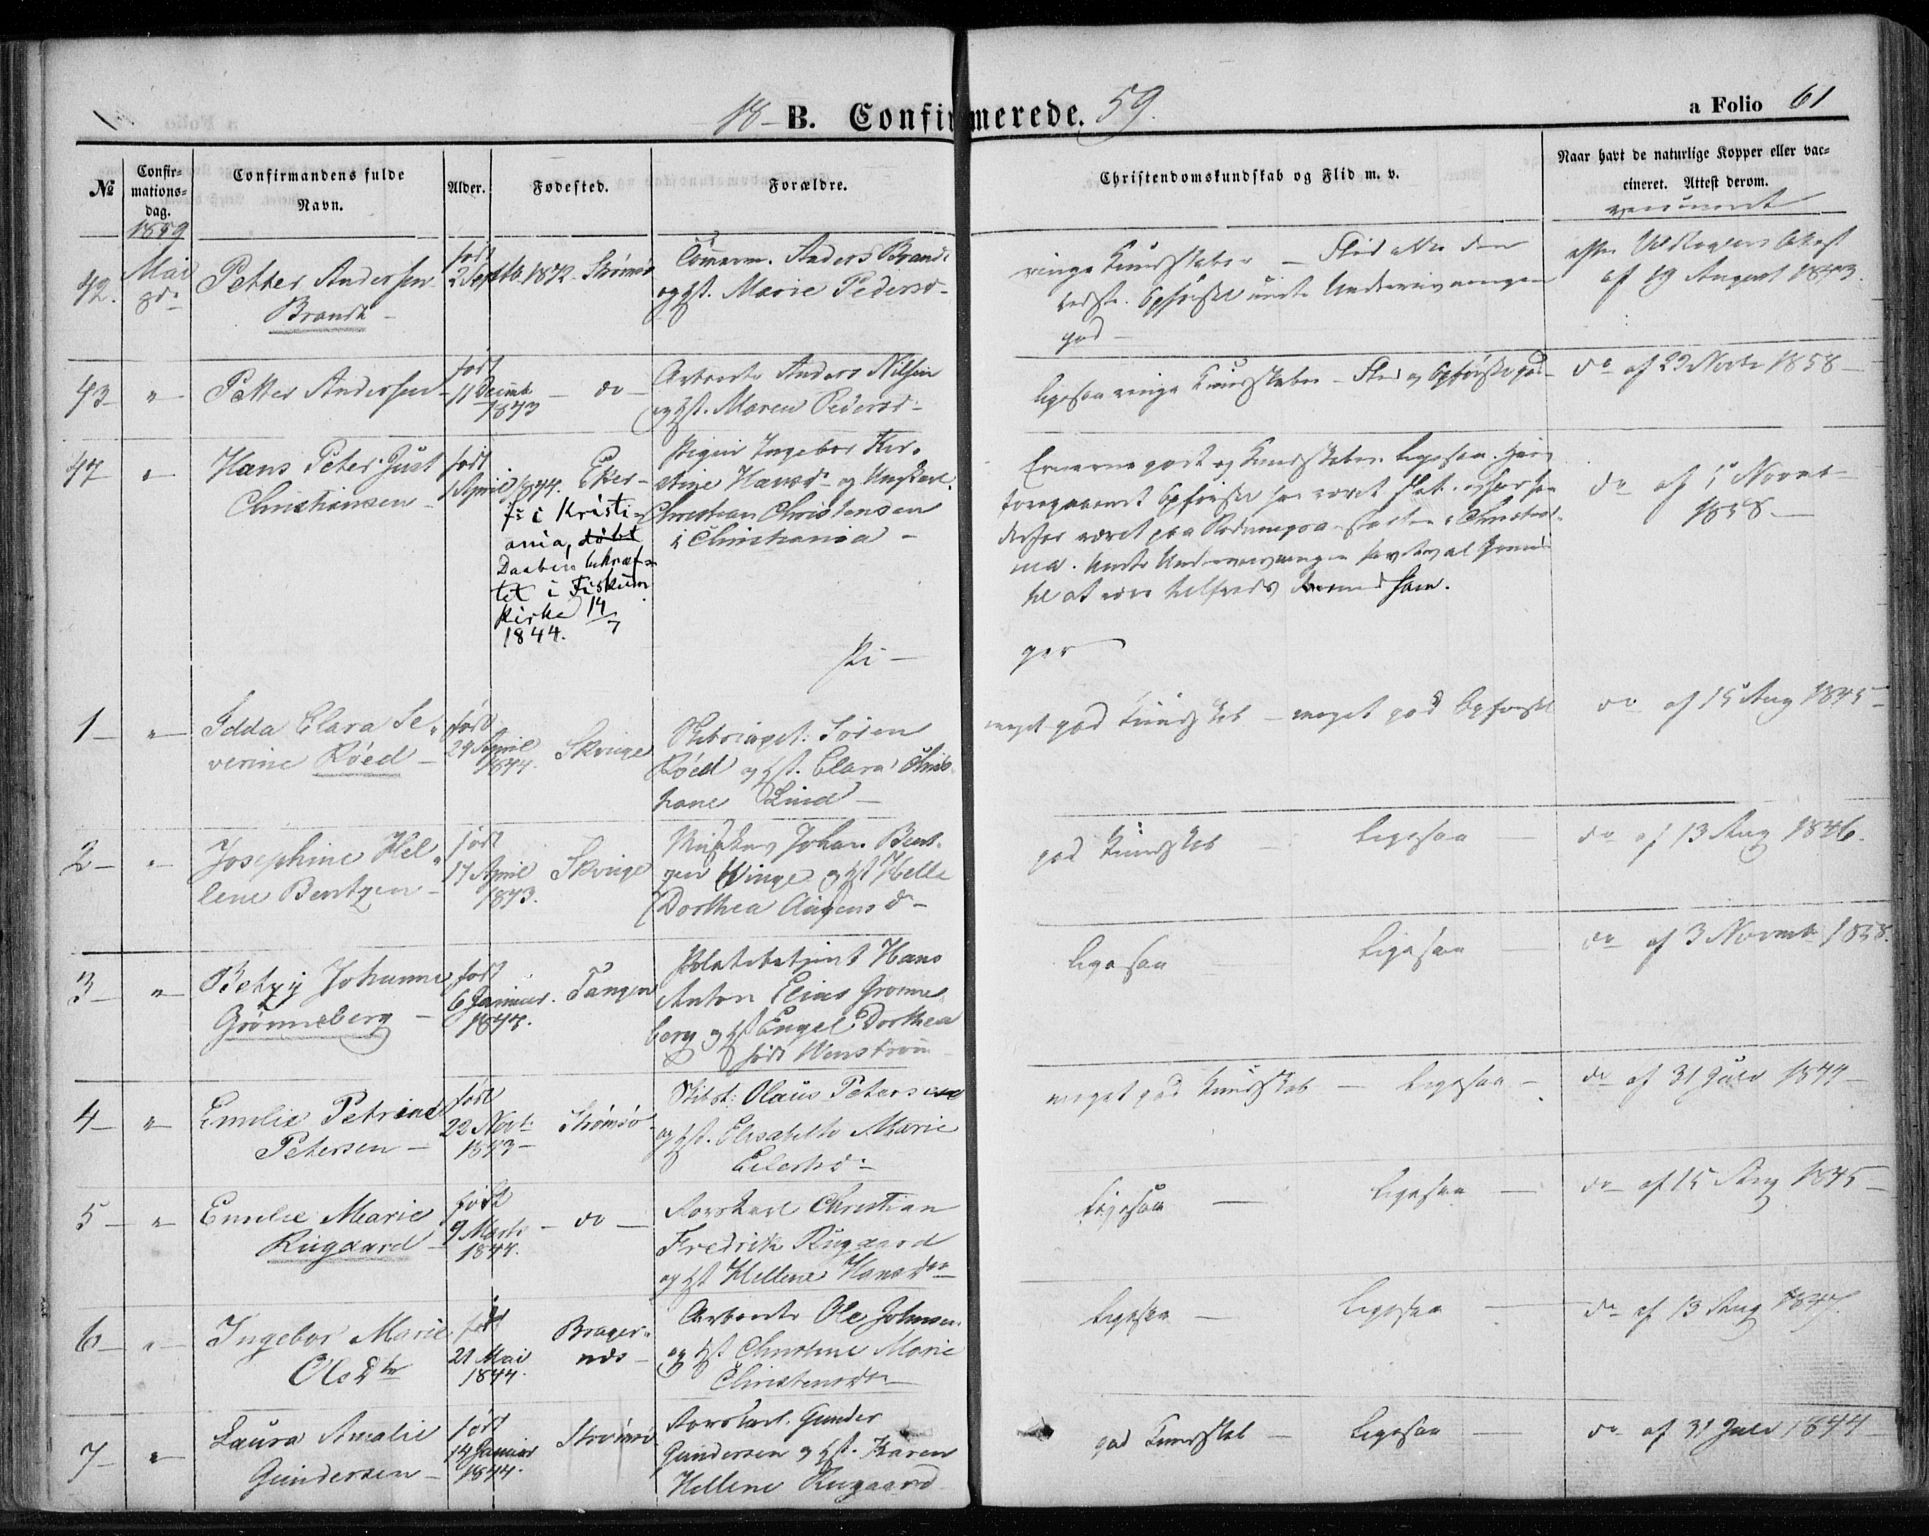 18- B. Confirmerede. 59.
a Folio 61
№
Confir-
mations-
dag.
1859
Confirmandens fulde
Navn.
Alder.
Fødested.
Forældre.
Christendomskundskab og Flid m. v.
Naar havt de naturlige Kopper eller vac-
cineret. Attest derom.
vaccineret
42.
Mai
8de
Petter Andersen
Brandt -
født
2 Septbr. 1842.
Strømsø
Anders Brandt
og Hst. Marie Pedersd-
ringe Kundskaber - Flid
Opførsel under Underviisningen
god -
efter Attest
af 19 August 1843.
43-
"-
Petter Andersen
født
11 Decembr
1843
- do -
Arbeidsm Anders Nilsen
og Hst. Maren Pedersd -
ligesaa ringe Kundskaber - Flid og Opførsel god -
do af 23 Novbr 1858 -
44
"-
Hans Peter Just
Christiansen -
født
1 April 1844.
Eker -
f: i Kristi-
ania, døbt
Daaben bekræf-
tet i Fiskum
Kirke 14/7
1844.
Pigen Ingebor Kir-
stine Hansd- og Ungkarl
Christian Christensen
i Christiania -
og Kundskaber ligesaa.
Opførsel har været slet
derfor været paa
Under Underviisningen
til at være tilfreds med ham.
do af 1 Novbr
1858. -
Pi -
ger
1 -
"-
Idda Clara Se-
verine Røed -
født
29 April
1844.
Skoger
Skibscapt: Søren
Røed og Hst. Clara Chris-
hane Lind -
meget god Kundskab - meget god Opførsel
do af 15 Aug 1845 -
2 -
"-
Josephine Hel-
lene Bentzen -
født
17 April
1843.
Skoger
Johan Bent-
zen Winge og Hst Helle
Dorthea Aagensd -
god Kundskab - ligesaa -
do af 13 Aug 1846.
3 -
"-
Betzy Johanne
Grønneberg -
født
6 Januar
1844.
Tangen
Politibetjent Hans
Anton Elias Grønne-
berg og Hst Engel Dorthea
født Wenstrøm
ligesaa - ligesaa -
do af 3 Novembr 1858.
4 -
"-
Emilie Petrine
Petersen -
født
22 Novbr
1843 -
Strømsø -
Skibst: Olaus Petersen
og Hst. Elisabeth Marie
Eilertsd -
meget god Kundskab - ligesaa -
do af 31 Juli 1844 -
5 -
"-
Emilie Marie
Rugaard -
født
9 Marts
1844.
- do -
Christian
Fredrik Rugaard
og Hst Hellene Hansdtr
ligesaa - ligesaa -
do af 15 Aug 1845 -
6 -
"-
Ingebor Marie
Olsdtr
født
21 Mai
1844.
Brager-
næs -
Arbeidsm Ole Johnsen
og Hst Christine Marie
Christensdtr
ligesaa - ligesaa -
do af 13 Aug
7 -
"-
Laura Amalie
Gundersen -
født
14 Januar
1844.
Strømsø
Gunder
Gundersen og Hst. Karen
Hellene Rugaard
god Kundskab - ligesaa -
do af 31 Juli 1844 -